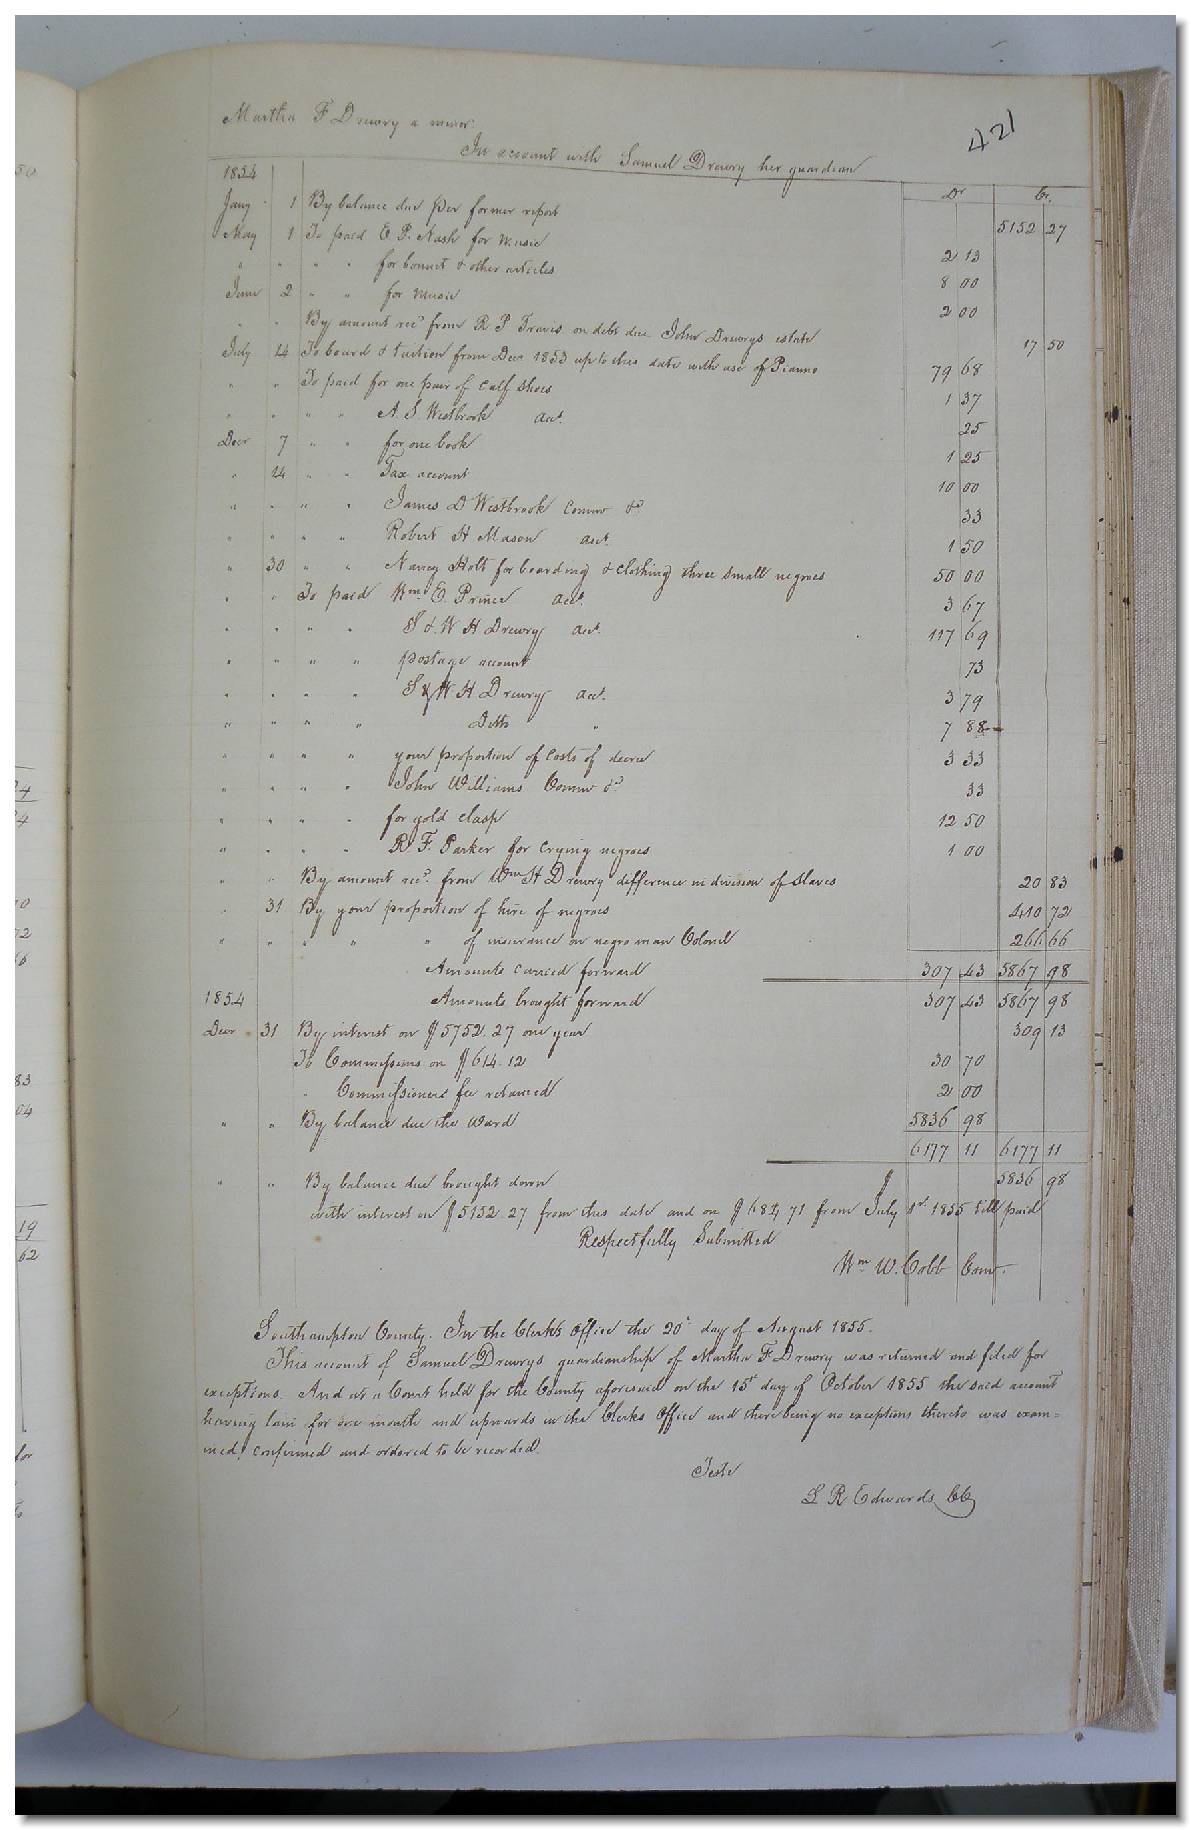 421
Martha F Drewry a minor.
In account with Samuel Drewry her guardian
1854 Dr Cr.
Jany 1 By balance due per former report 5152 27
May 1 To paid E P. Nash for Music 2 13
" " " " for bonnet & other articles 8 00
June 2 " " for music 2 00
" " By amount recd from R P Travis on debt due John Drewrys estate 17 50
July 14 To board & tuition from Decr 1853 up to this date with use of Pianno 79 68
" " To paid for one pair of calf shoes 1 37
" " " " A. S. Westbrook act. 25
Decr 7 " " for one book 1 25
" 14 " " Tax account 10 00
" " " " James D Westbrook Commr &c 33
" " " " Robert H Mason act. 1 50
" 30 " " Nancy Holt for boarding & clothing three small negroes 50 00
" " To paid Wm E. Prince act. 3 67
" " " " S & W H Drewry act. 117 69
" " " " postage account 73
" " " " S & W H Drewry act. 3 79
" " " " Ditto " 7 88
" " " " your proportion of costs of decree 3 33
" " " " John Williams Commr &c 33
" " " " for gold clasp 12 50
" " " " R. F. Parker for crying negroes 1 00
" " By amount recd. from Wm H Drewry difference in division of slaves 20 83
" 31 By your proportion of hire of negroes 410 72
" " " " " of insurance on negro man Colonel 266 66
Amounts carried forward 307 43 5867 98
1854 Amounts brought forward 307 43 5867 98
Decr 31 By interest on $5752.27 one year 309 13
To Commissions on $614.12 30 70
" Commissioners fee retained 2 00
" " By balance due the Ward 5836 98
6177 11 6177 11
" " By balance due brought down $ 5836 98
with interest on $5152.27 from this date and on $684 71 from July 1st. 1855 till paid
Respectfully Submitted
Wm W. Cobb Comr.
Southampton County. In the Clerk's Office the 20th day of August 1855.
This account of Samuel Drewrys guardianship of Martha F Drewry was returned and filed for
exceptions. And at a Court held for the County aforesaid on the 15th day of October 1855 the said account
having lain for one month and upwards in the Clerks Office and there being no exceptions thereto was exam=
ined, confirmed and ordered to be recorded.
Teste
L R Edwards CC